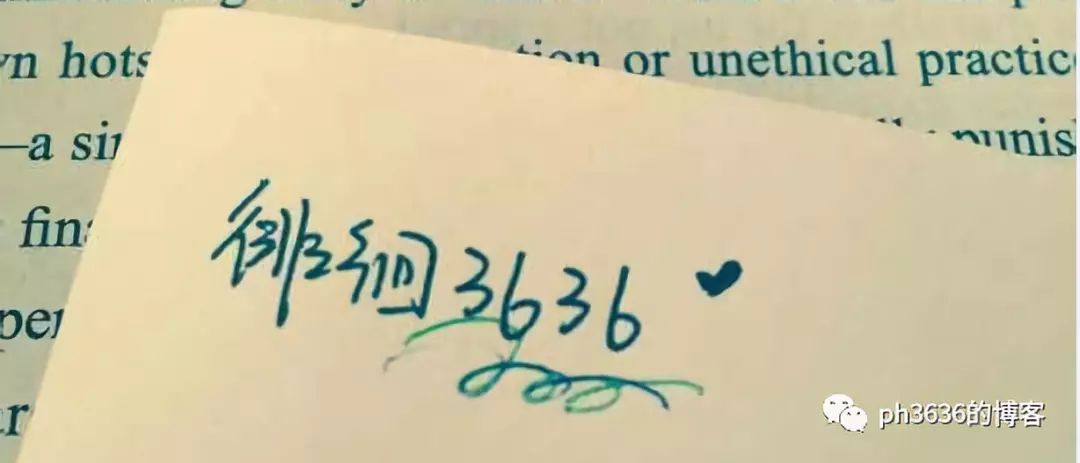 n hots
tion or unethical practic
—a sin
punis
fin
per
徘徊3636
ph3636的博客